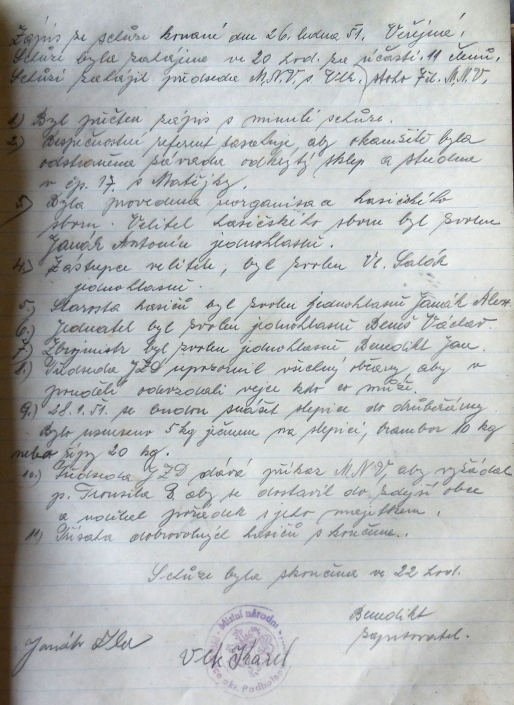 Zápis ze schůze konané dne 26. ledna 51. Veřejná.
Schůze byla zahájena ve 20 hod. za účasti 11 členů.
Schůzi zahájil předseda M.N.V. s Vlk.
1) Byl přečten zápis s minulé schůze.
2) Bespečnostní referent, aby okamžitě byla
odstraněna závada odkrytý sklep a studna
v čp. 17 s Matějky.
3) Byla provedena norganisace hasičského
sboru. Velitel hasičského sboru byl zvolen
Janák Antonín jednohlasně.
4.) Zástupce velitele, byl zvolen Vl. Salák
jednohlasně.
5.) Starosta hasičů byl zvolen jednohlasně Janák Alex.
6.) Jednatel byl zvolen jednohlasně Beneš Václav.
7.) Zbrojmistr byl zvolen jednohlasně Benedikt Jan.
8.) Předseda JZD upozornil všechny občany, aby v
pondělí odevzdali vejce kdo co může.
9.) 28.1.51. se budou snášet slepice do drůbežárny
Bylo usneseno 5 kg ječmene na slepici, brambor 10 kg
nebo řípy 20 kg.
10.) Předseda JZD dává příkaz M.N.V, aby vyžádal
p. B. aby se dostavil do zdejší obce
a udělal pořádek s jeho majetkem.
11) Přísaha dobrovolných hasičů s končena.
Schůze byla skončena ve 22 hod.
Benedikt
zapisovatel.
Janák
Vlk Karel
Místní národní
okr.